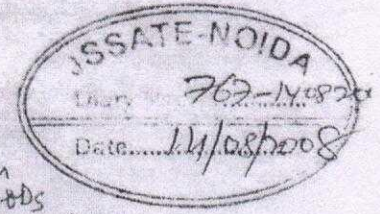 JSSATE-NOIDA
Diary No. 767-14/08/20
Date......14/08/2008